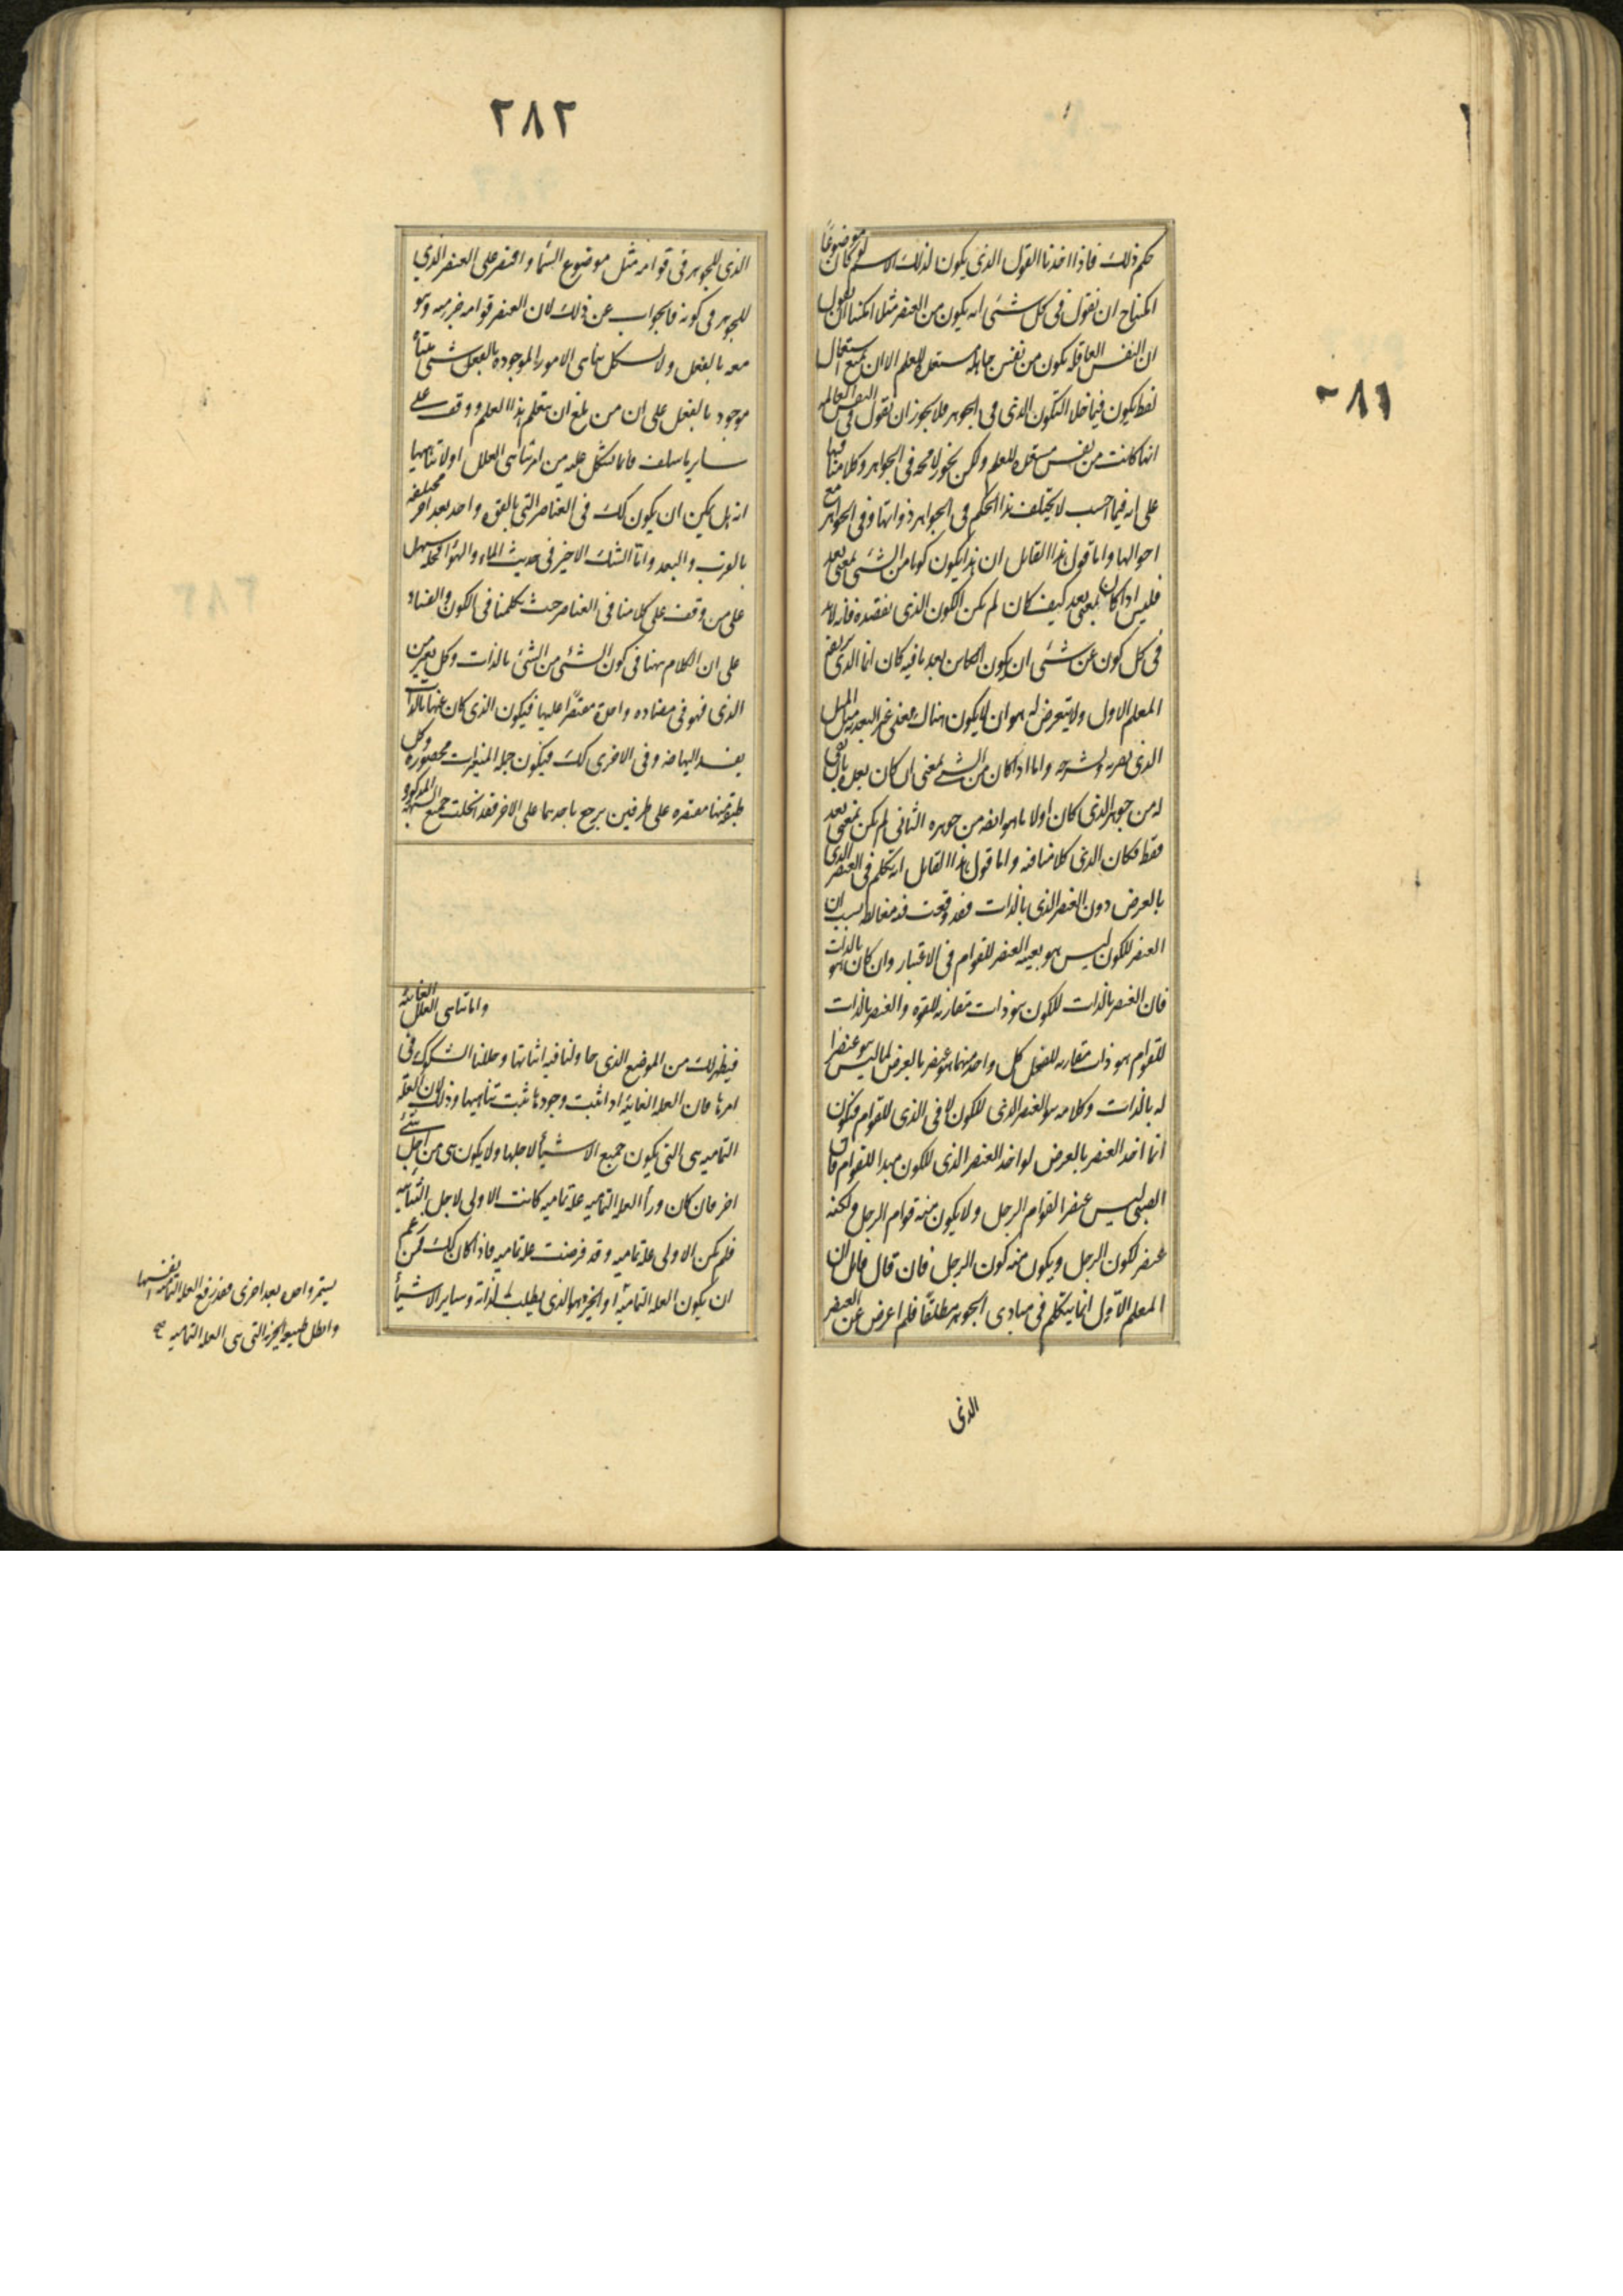 حكم ذلك فاذا اخذنا القول الذى يكون لذلك الاسم لو كان موضوعًا
امكننا ح ان نقول فى كل شئ انه يكون من العنصر مثلا امكننا ان نقول
ان النفس العاقلة يكون من نفس جاهلة مستعدة للعلم الا ان يمنع استعمال
لفظ يكون فيما خلا التكون الذى فى الجوهر فلا يجوز ان نقول فى النفس العالمة
انها كانت من نفس مستعدة للعلم ولكن يجوز لا محة فى الجواهر وكلامنا فيها
على انه فيما احسب لا يختلف هذا الحكم فى الجواهر ذواتها وفى الجواهر مع
احوالها واما قول هذا القايل ان هذا يكون كونا من الشئ بمعنى بعد
فليس اذا كان بمعنى بعد كيف كان لم يكن الكون الذى نقصده فانه لابد
فى كل كون عن شئ ان يكون الكاين بعد ما فيه كان انما الذى
المعلم الاول ولا يتعرض له هو ان لا يكون هناك معنى غير البعدية مثل المثل
الذى نعر به ونشرحه واما اذا كان من الشئ بمعنى ان كان بعد بان بقى
له من جوهر الذى كان اولا ما هو ايضه من جوهره الثانى لم يكن بمعنى بعد
فقط فكان الذى كلامنا فيه واما قول هذا القايل انه تكلم فى العنصر الذى
بالعرض دون العنصر الذى بالذات فقد وقعت فيه مغالطة بسبب ان
العنصر للكون ليس هو بعينه العنصر للقوام فى الاعتبار وان كان هو بالذات
فان العنصر بالذات للكون هو ذات مقارنة للقوة والعنصر بالذات
للقوام هو ذات مقارنة للفعل كل واحد منهما هو عنصر بالعرض لما ليس هو عنصرا
له بالذات وكلامه هو العنصر الذى للكون لا فى الذى للقوام فيكون
انما اخذ العنصر بالعرض لو اخذ العنصر الذى للكون مبدا للقوام فان
الصبى ليس عنصرا لقوام الرجل ولا يكون منه قوام الرجل ولكنه
عنصر لكون الرجل ويكون منه كون الرجل فان قال قايل ان
المعلم الاول انما يتكلم فى مبادى الجوهر مطلقًا فلم اعرض عن العنصر
الذى
٢٨٢
الذى للجوهر فى قوامه مثل موضوع السما واقتصر على العنصر الذى
للجوهر فى كونه فالجواب عن ذلك لان العنصر قوامه جزء منه وهو
معه بالفعل ولا يشكل تناهى الامور الموجوده بالفعل شئ متناه
موجود بالفعل على ان من بلغ ان يتعلم هذا العلم ووقف على
ساير ما سلف فانما يشكل عليه من امر تناهى العلل او لا تناهيها
انه هل يمكن ان يكون كك فى العناصر التى بالقوه واحد بعد اخر مختلفة
بالقرب والبعد واما الشك الاخير فى حديث الماء والهوا فحله سهل
على من وقف على كلامنا فى العناصر حيث تكلمنا فى الكون والفساد
على ان الكلام ههنا فى كون الشئ من الشئ بالذات وكل تغير من
الذى فهو فى مضاده واحدة مقتصرا عليها فيكون الذى كان عنها بالذات
يفسد اليها ضه وفى الاخرى كك فيكون جملة التغيرات محصورة وكل
طبقة منها مقتصره على طرفين يرجح باحدهما على الاخر فقد انحلت جميع الشبهة المذكورة
واما تناهى العلل الغائية
فيظهر لك من الموضع الذى حاولنا فيه اثباتها وحللنا الشكوك فى
امرها فان العلة الغائية اذا ثبت وجودها ثبت تناهيها وذلك لان العلة
التمامية هى التى يكون جميع الاشيأ لاجلها ولا يكون هى من اجل شئ
اخر فان كان ورأ العلة التمامية علة تمامية كانت الاولى لاجل الثانية
فلم يكن الاولى علة تمامية وقد فرضت علة تمامية فاذا كان كك فمن زعم
ان يكون العلة التمامية او الخير هو الذى يطلب لذاته وساير الاشيأ
يستمر واحد بعد اخرى فقد رفع العلة التمامية انفسها
وابطل طبيعة الخير التى هى العلة التمامية صح